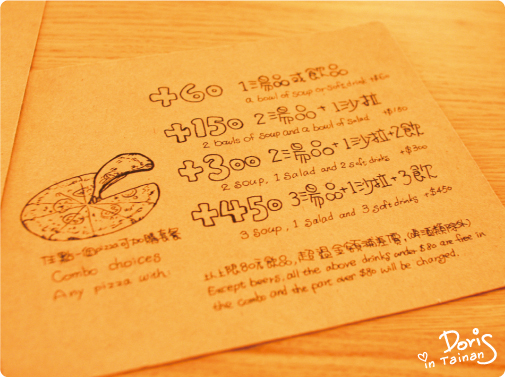 +60 1湯品或飲品
a bowl of soup or soft drink +$60
+150 2湯品+1沙拉
2 bowls of soup and a bowl of salad +$150
+300 2湯品+1沙拉+2飲
2 soup, 1 salad and 2 soft drinks +$300
+450 3湯品+1沙拉+3飲
3 soup, 1 salad and 3 soft drinks +$450
任點一個pizza可加購套餐
Combo choices
Any pizza with:
以上限80元飲品,超過金額補差價,(酒類除外)
Except beers, all the above drinks under $80 are free in
the combo and the part over $80 will be charged.
Doris
in Tainan